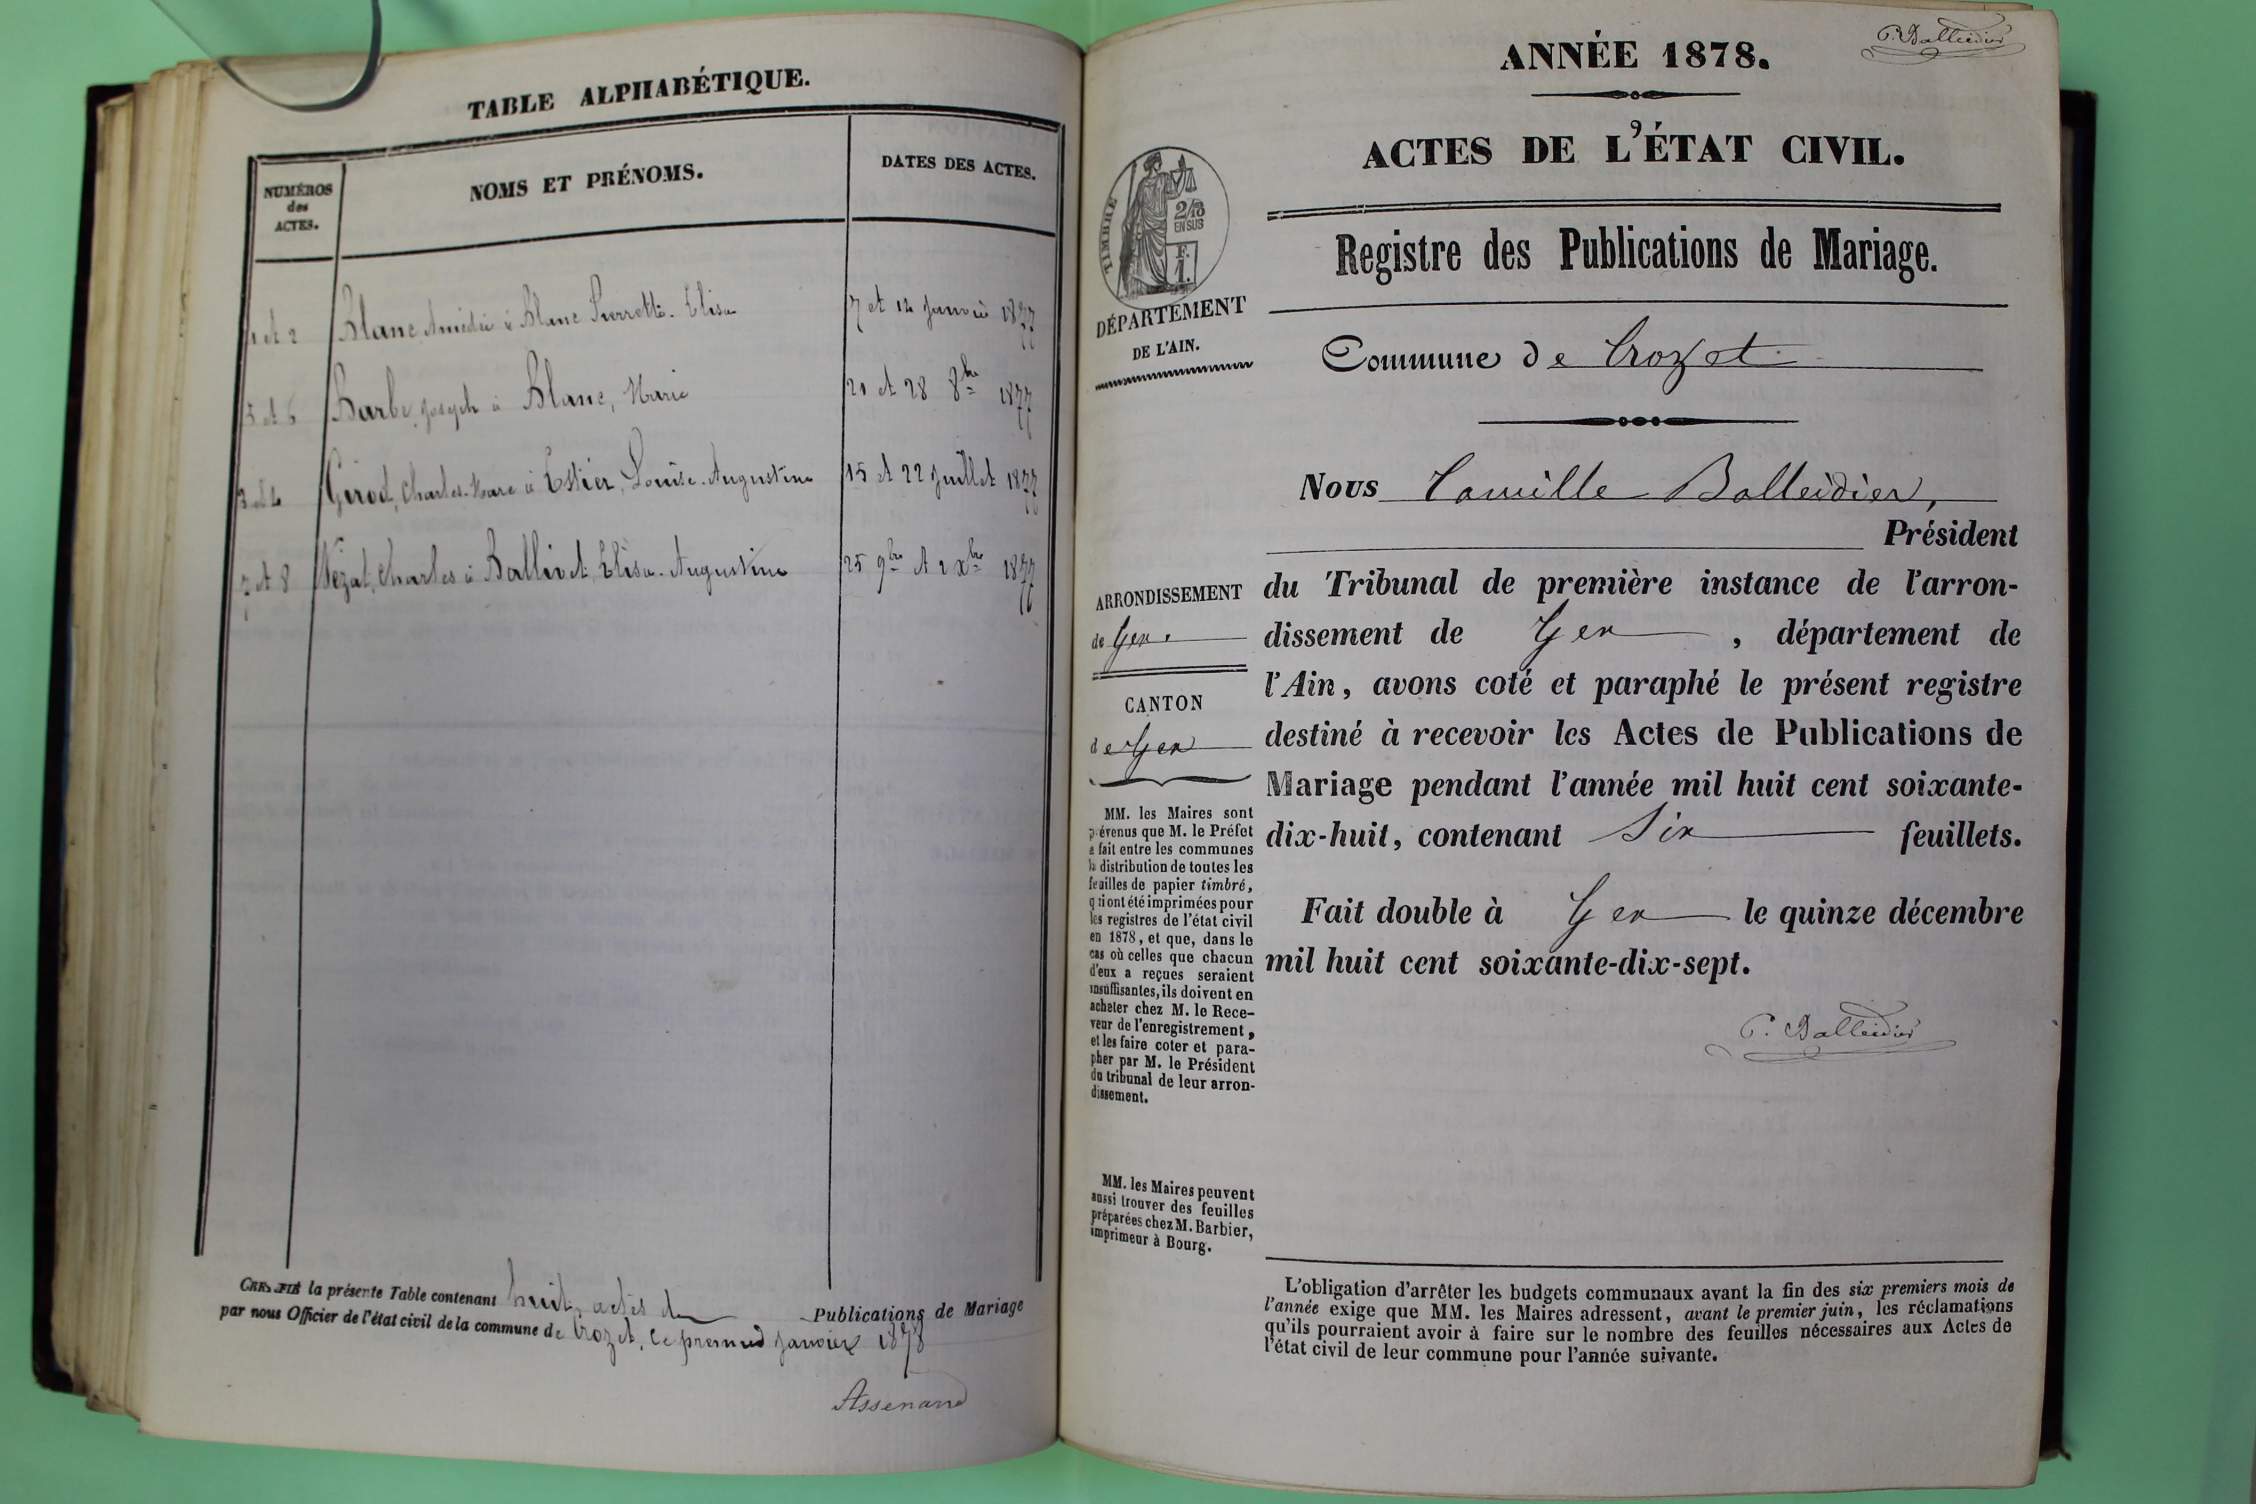 TABLE ALPHABÉTIQUE.
NUMÉROS
des
ACTES.
NOMS ET PRÉNOMS.
DATES DES ACTES.
1 et 2 Blanc Amédée à Blanc Pierrette-Elisa 7 et 14 Janvier 1877
5 et 6 Barbe, Joseph à Blanc, Marie 21 et 28 8bre 1877
3 et 4 Girod, Charles-Marc à Estier, Louise-Augustine 15 et 22 Juillet 1877
7 et 8 Charles à Ballivet, Elisa-Augustine 25 9bre et 2 Xbre 1877
CERTIFIÉ la présente Table contenant huit actes de Publications de Mariage
par nous Officier de l'état civil de la commune de Crozet, ce premier janvier 1878
Assenard
C. Balleidier
ANNÉE 1878.
ACTES DE L'ÉTAT CIVIL.
TIMBRE
2/10
EN SUS
F.
1.
DÉPARTEMENT
DE L'AIN.
Registre des Publications de Mariage.
Commune de Crozet.
Nous Camille Balleidier,
Président
du Tribunal de première instance de l'arron-
dissement de Gex, département de
l'Ain, avons coté et paraphé le présent registre
destiné à recevoir les Actes de Publications de
Mariage pendant l'année mil huit cent soixante-
dix-huit, contenant Six feuillets.
Fait double à Gex le quinze décembre
mil huit cent soixante-dix-sept.
C. Balleidier
ARRONDISSEMENT
de Gex.
CANTON
de Gex
MM. les Maires sont
prévenus que M. le Préfet
a fait entre les communes
la distribution de toutes les
feuilles de papier timbré,
qui ont été imprimées pour
les registres de l'état civil
en 1878, et que, dans le
cas où celles que chacun
d'eux a reçues seraient
insuffisantes, ils doivent en
acheter chez M. le Rece-
veur de l'enregistrement,
et les faire coter et para-
pher par M. le Président
du tribunal de leur arron-
dissement.
MM. les Maires peuvent
aussi trouver des feuilles
préparées chez M. Barbier,
imprimeur à Bourg.
L'obligation d'arrêter les budgets communaux avant la fin des six premiers mois de
l'année exige que MM. les Maires adressent, avant le premier juin, les réclamations
qu'ils pourraient avoir à faire sur le nombre des feuilles nécessaires aux Actes de
l'état civil de leur commune pour l'année suivante.